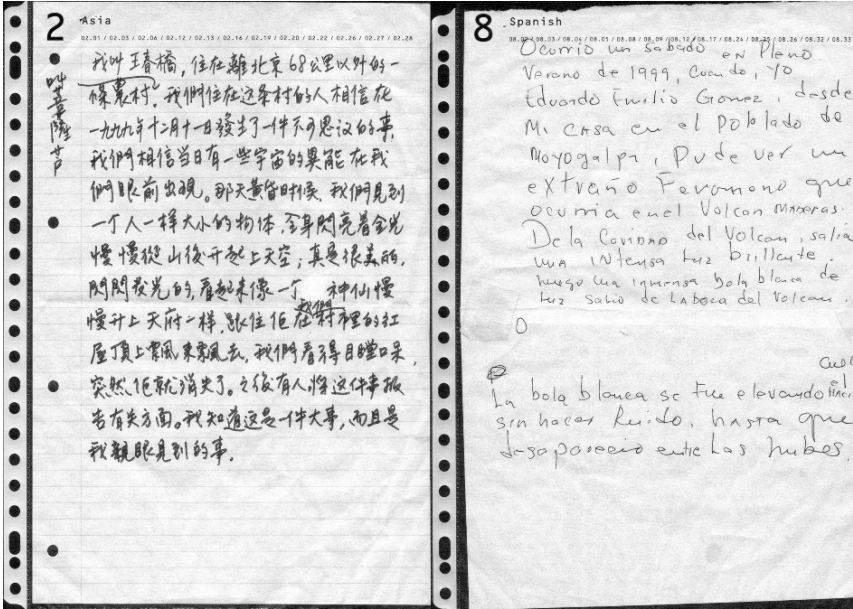 2 Asia
叫菩薩
我叫王春橋,住在離北京68公里以外的一
條農村,我們住在这条村的人相信在
一九九九年十二月十一日發生了一件不可思议的事,
我們相信当日有一些宇宙的異能在我
們眼前出現。那天黄昏时候,我們見到
一个人一样大小的物体,全身閃亮着金光
慢慢從山後升起上天空;真是很美的,
閃閃发光的,看起来像一个神仙慢
慢升上天府一样,跟住佢在我們村裡的红
屋頂上飄來飄去,我們看得目瞪口呆,
突然佢就消失了。之後有人將这件事报
告有关方面。我知道这是一件大事,而且是
我親眼見到的事.
8 Spanish
Ocurrio un sabado en Pleno
Verano de 1999, Cuando, Yo
Eduardo Emilio Gomez, desde
Mi casa en el Poblado de
Moyogalpa, Pude ver un
extraño Fenomeno que
ocurria en el Volcan Maderas.
De la Corona del Volcan, salia
una intensa luz brillante.
luego una inmensa bola blanca de
luz salio de La boca del Volcan.
La bola blanca se Fue elevando hacia el
sin hacer Ruido, hasta que
desaparecio entre las nubes.